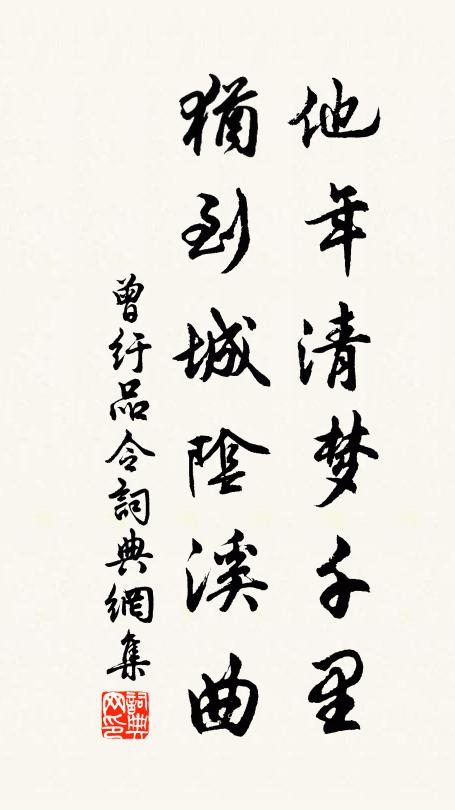 他年清梦千里
猶到城陰溪曲
曾紆品令詞典網集
詞典網印